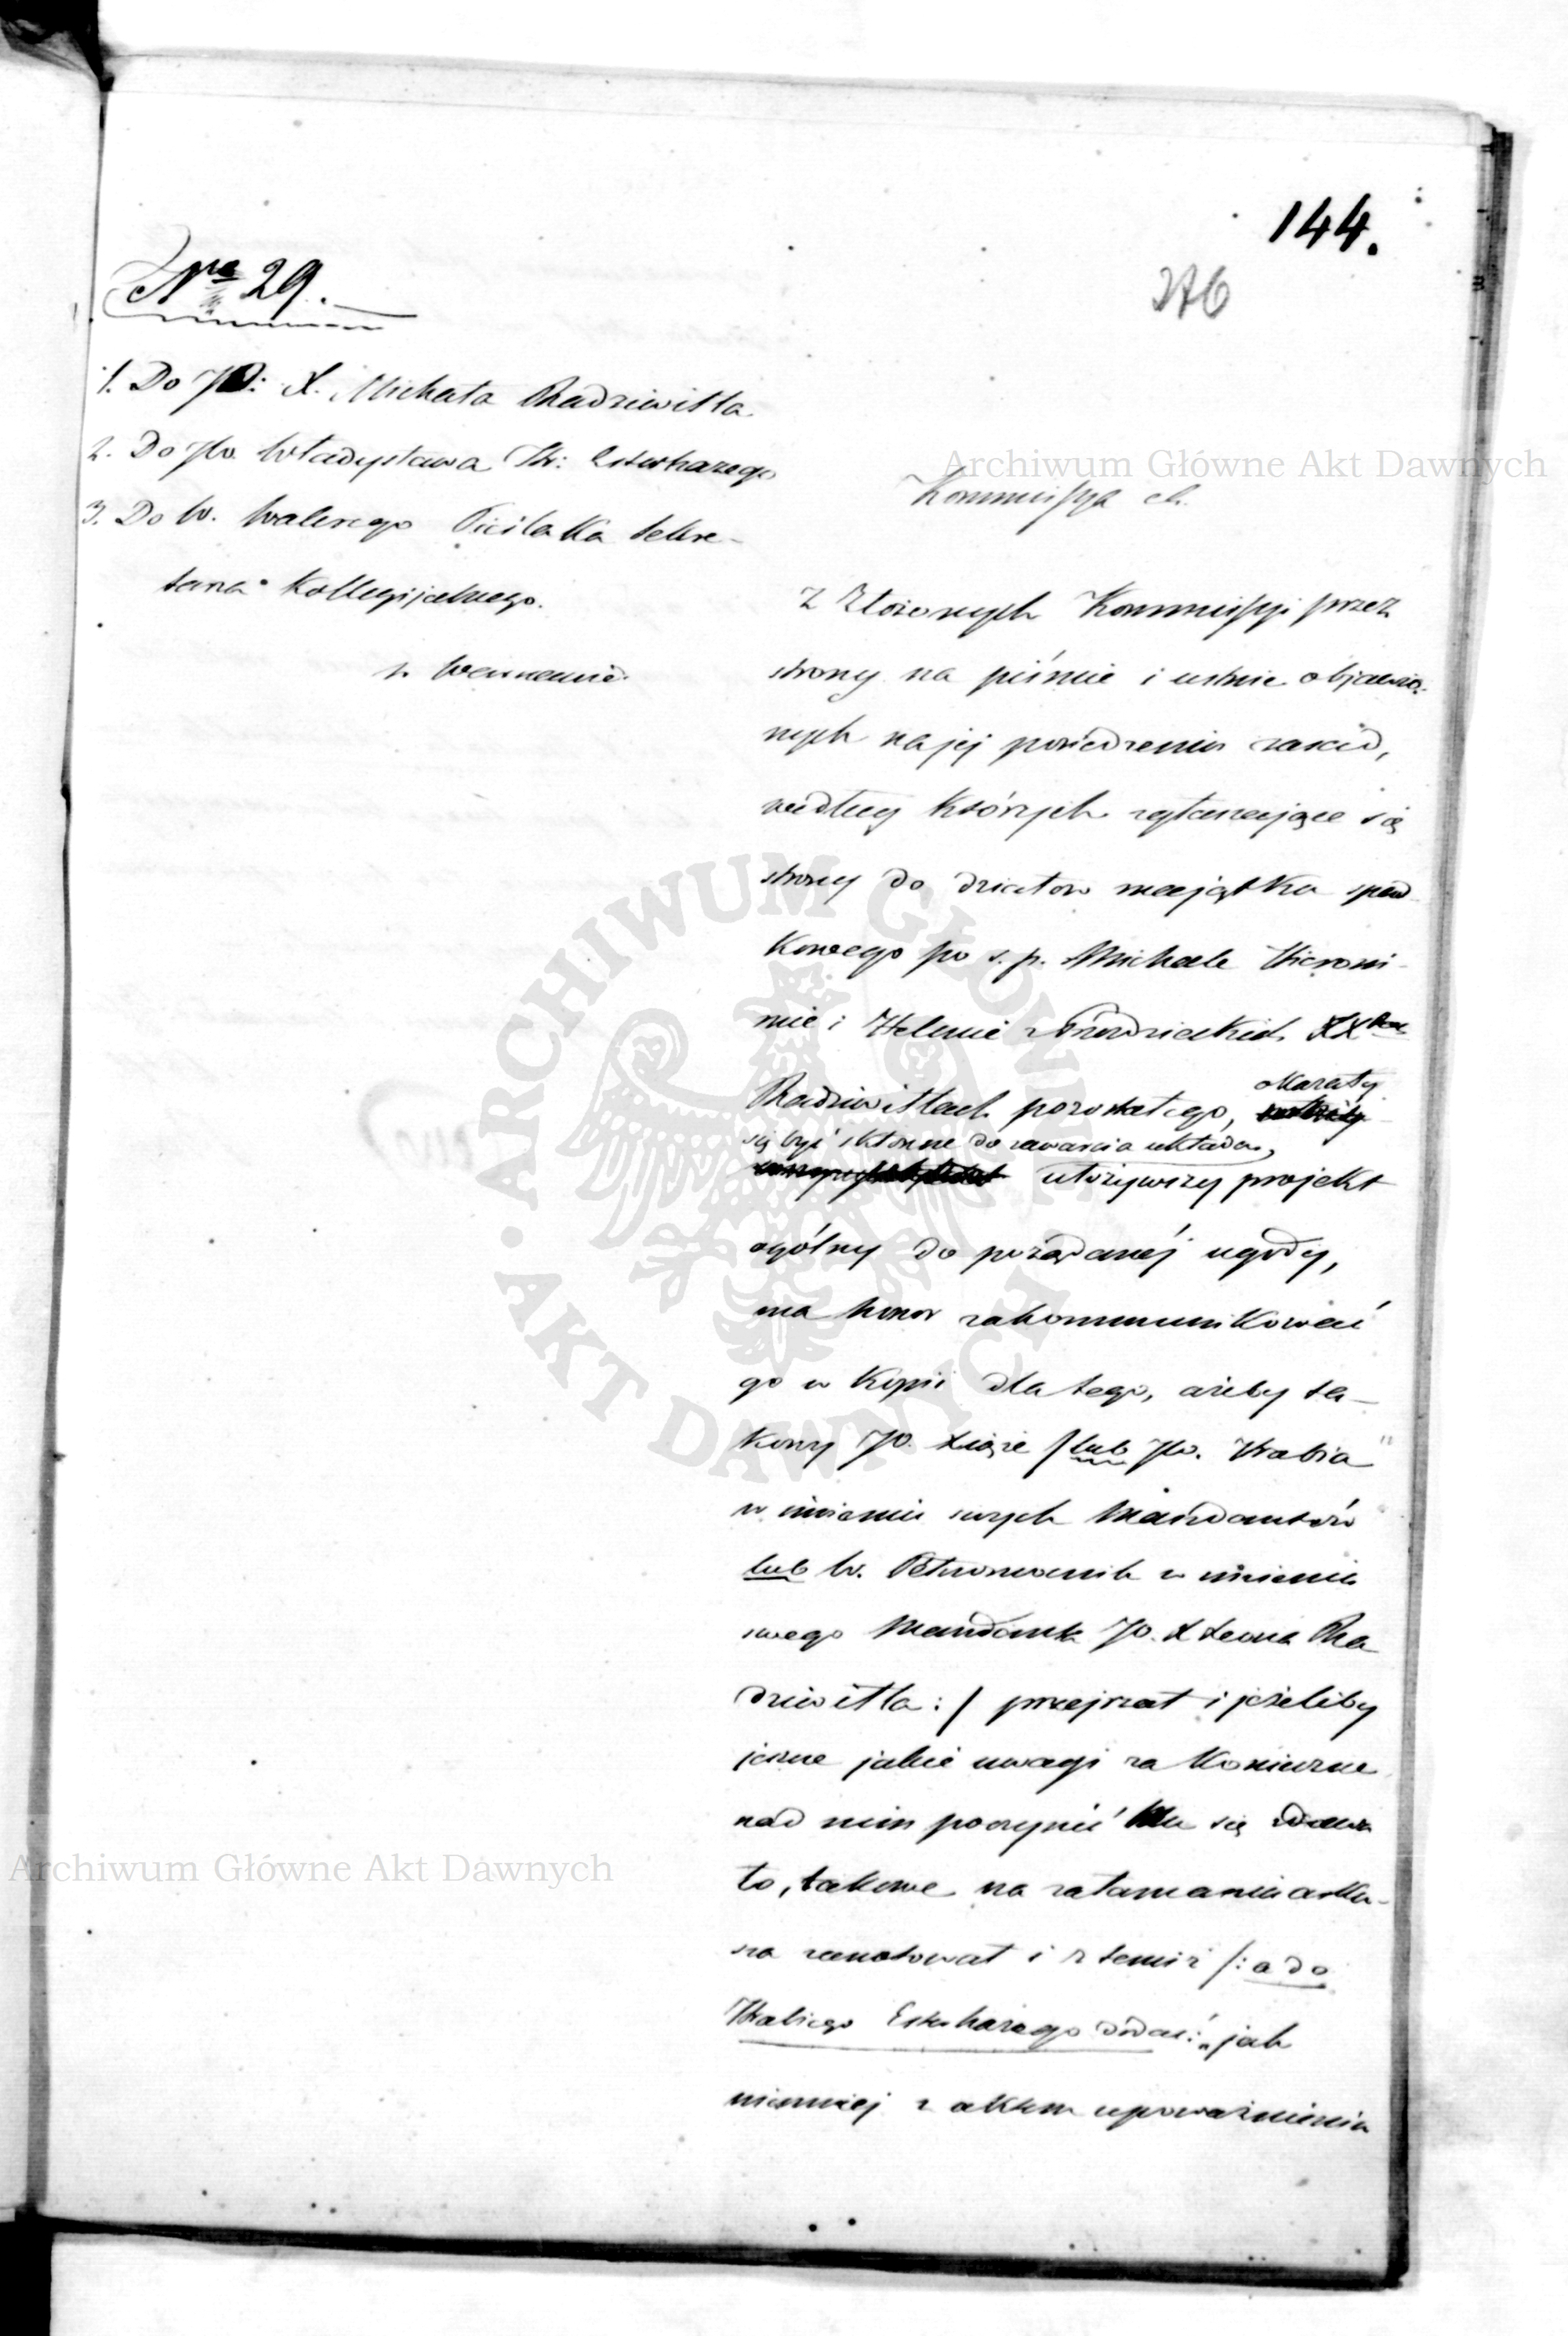 144.
376
Nro 29.
1. Do JO: X. Michała Radziwiłła
2. Do JW. Władysława Hr: Esterhazego
3. Do W. Walerego Sekre-
tarza Kollegijalnego.
w Warszawie.
Kommissya
Z złożonych Kommissyi przez
strony na piśmie i ustnie objawio-
nych na jej posiedzeniu zasad,
według których zgłaszające się
strony do działów majątku spad-
kowego po s. p. Michale Hieroni-
mie i Helenie z Przezdzieckich XX
Radziwiłłach pozostałego, okazały
się być skłonne do zawarcia układu,
ułożywszy projekt
ogólny do pożądanéj ugody,
ma honor zakommunikować
go w Kopii dla tego, ażeby ta-
kowy JO. Xiąże /lub JW. Hrabia"
w imieniu swych Mandantów
lub W. w imieniu
swego Mandanta JO. X Leona Ra
dziwiłła:/ przejrzał i jeżeliby
jeszcze jakie uwagi za Konieczne
nad nim poczynić Mu się zdawa
ło, takowe na załamaniu arku-
sza zanotował i z temiż /: a do
Hrabiego Esterhazego dodać: „jak
niemniej z aktem upoważnienia
Archiwum Główne Akt Dawnych
ARCHIWUM GŁÓWNE • AKT DAWNYCH •
Archiwum Główne Akt Dawnych